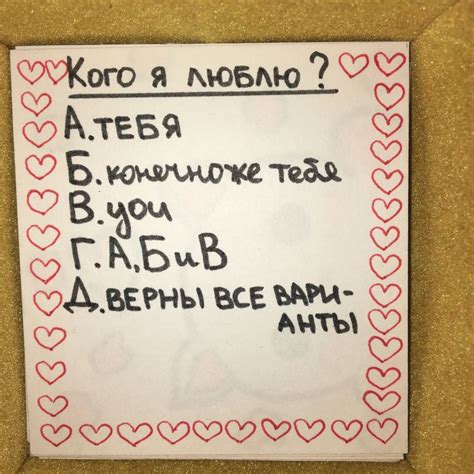 Кого я люблю?
А. ТЕБЯ
Б. конечноже тебя
В. you
Г. А, Б и В
Д. ВЕРНЫ ВСЕ ВАРИ-
АНТЫ